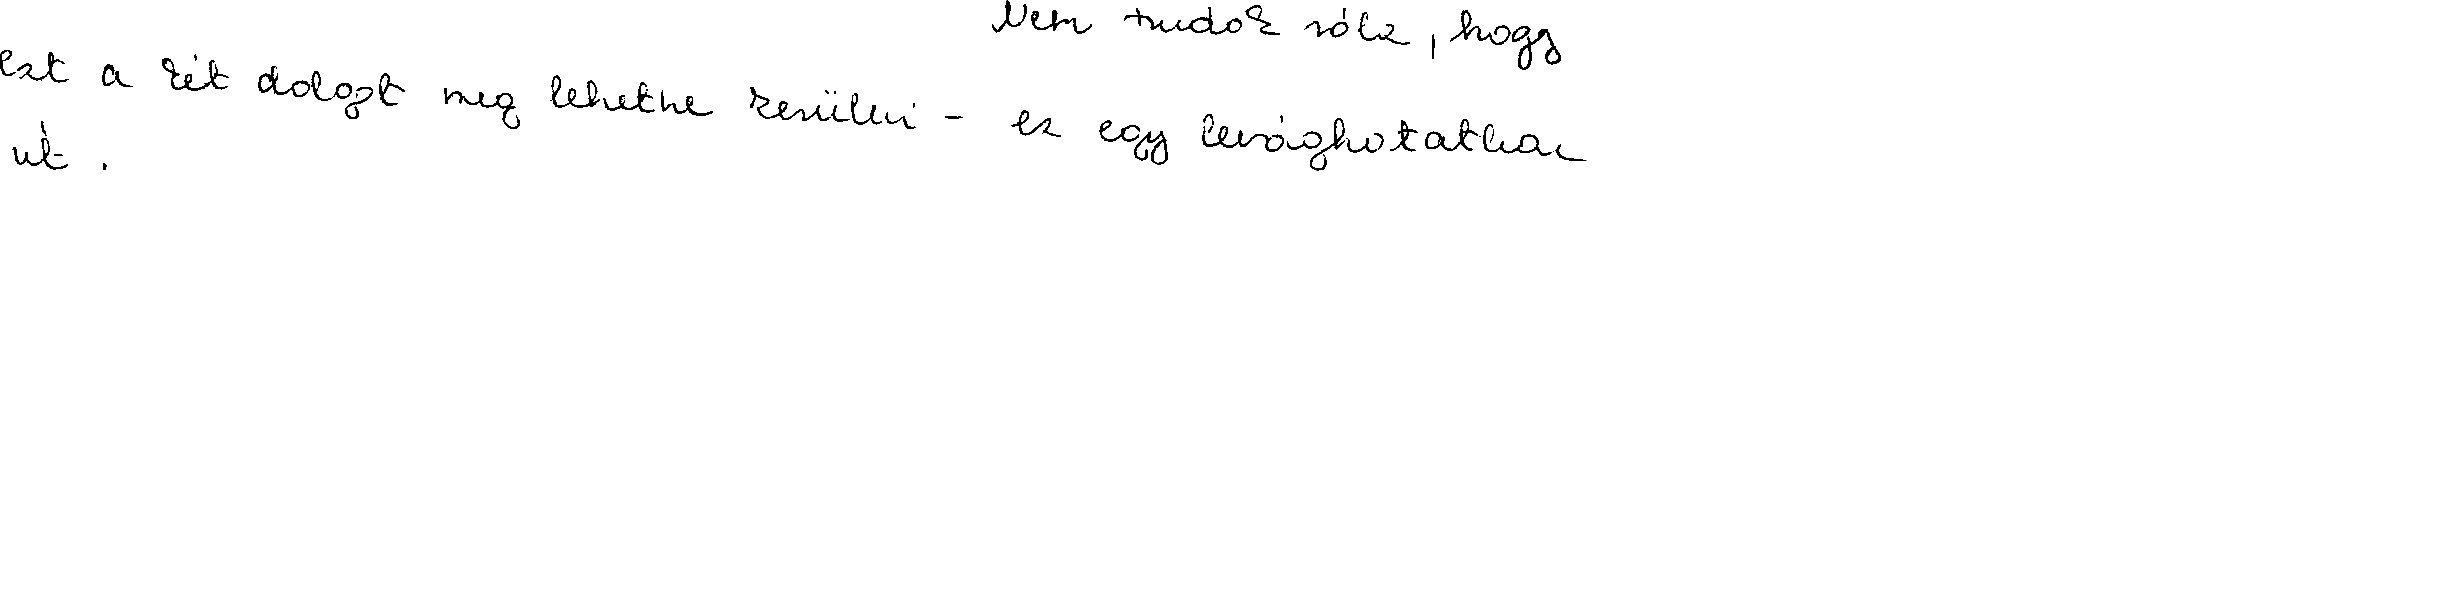 Nem tudok róla, hogy
ezt a két dologt meg lehetne kerülni - ez egy levághatatlan
út.